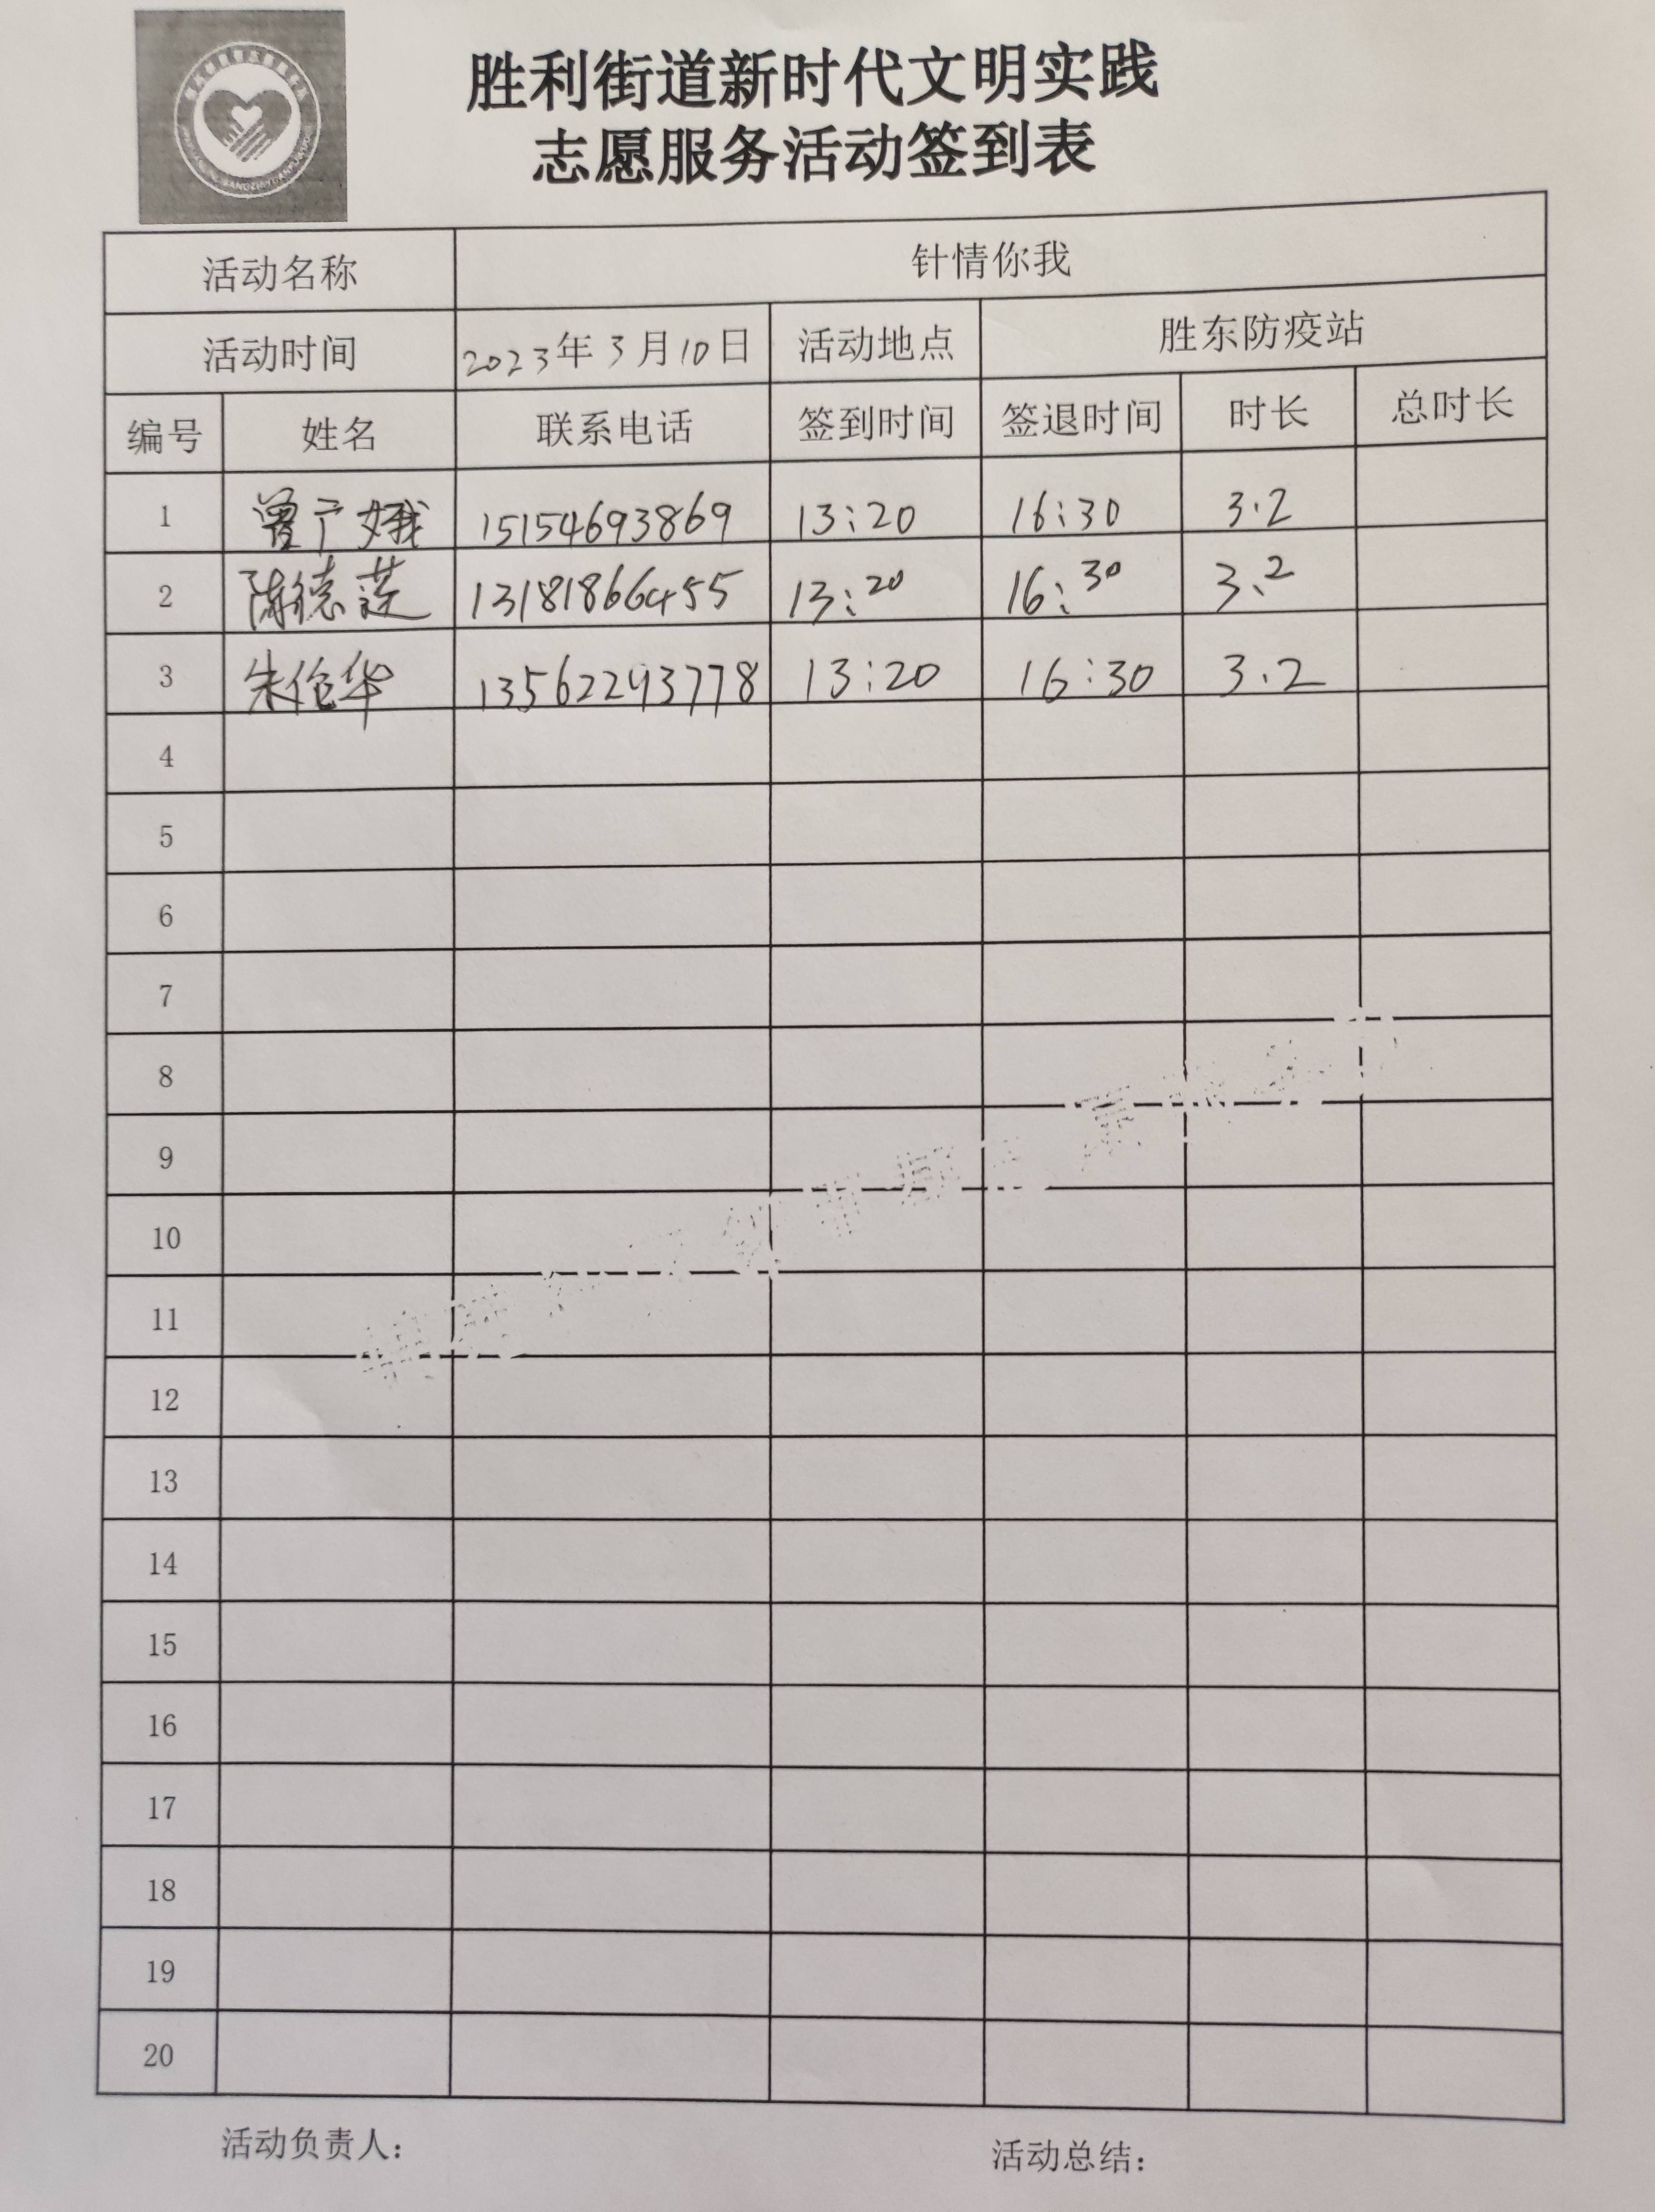 胜利街道新时代文明实践
志愿服务活动签到表
活动名称 针情你我
活动时间 2023年3月10日 活动地点 胜东防疫站
编号 姓名 联系电话 签到时间 签退时间 时长 总时长
1 曾广娥 15154693869 13:20 16:30 3.2
2 陈德莲 13181866455 13:20 16:30 3.2
3 朱伦华 13562293778 13:20 16:30 3.2
4
5
6
7
8
9
10
11
12
13
14
15
16
17
18
19
20
活动负责人： 活动总结：